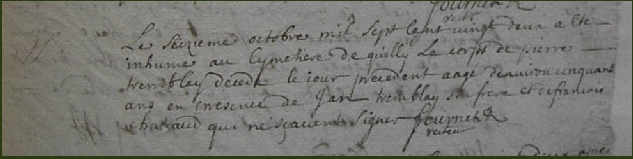 fournerd
rectr
Le seizieme octobre mil sept cent vingt deux a ete
inhumé au Cymetiere de quilly Le corps de pierre
tremblay decedé le jour precedent aagé denuiron cinquant
ans en presence de Jan tremblay son frere et de francois
chataud qui ne sçauent signer fournerd
recteur